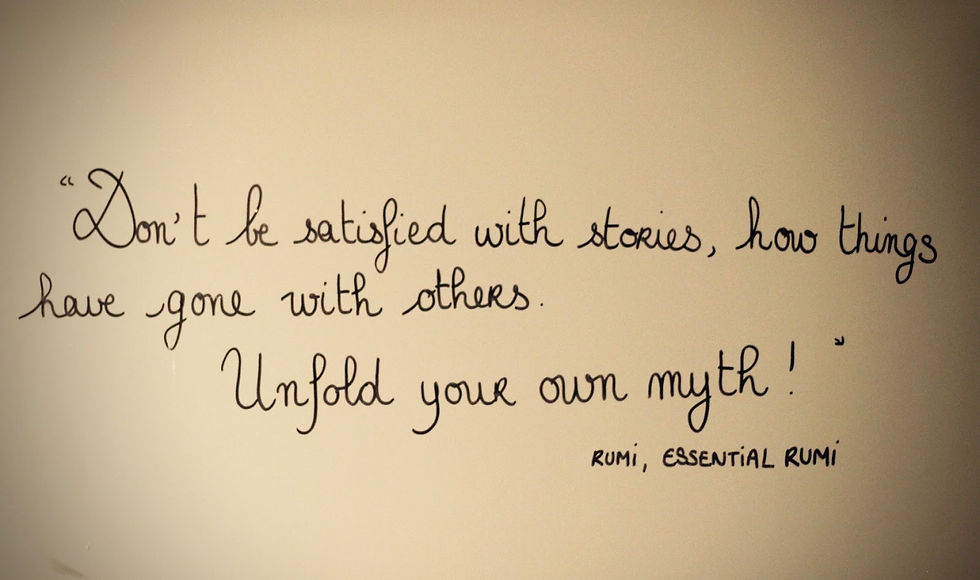 “Don't be satisfied with stories, how things
have gone with others.
Unfold your own myth! ”
RUMI, ESSENTIAL RUMI